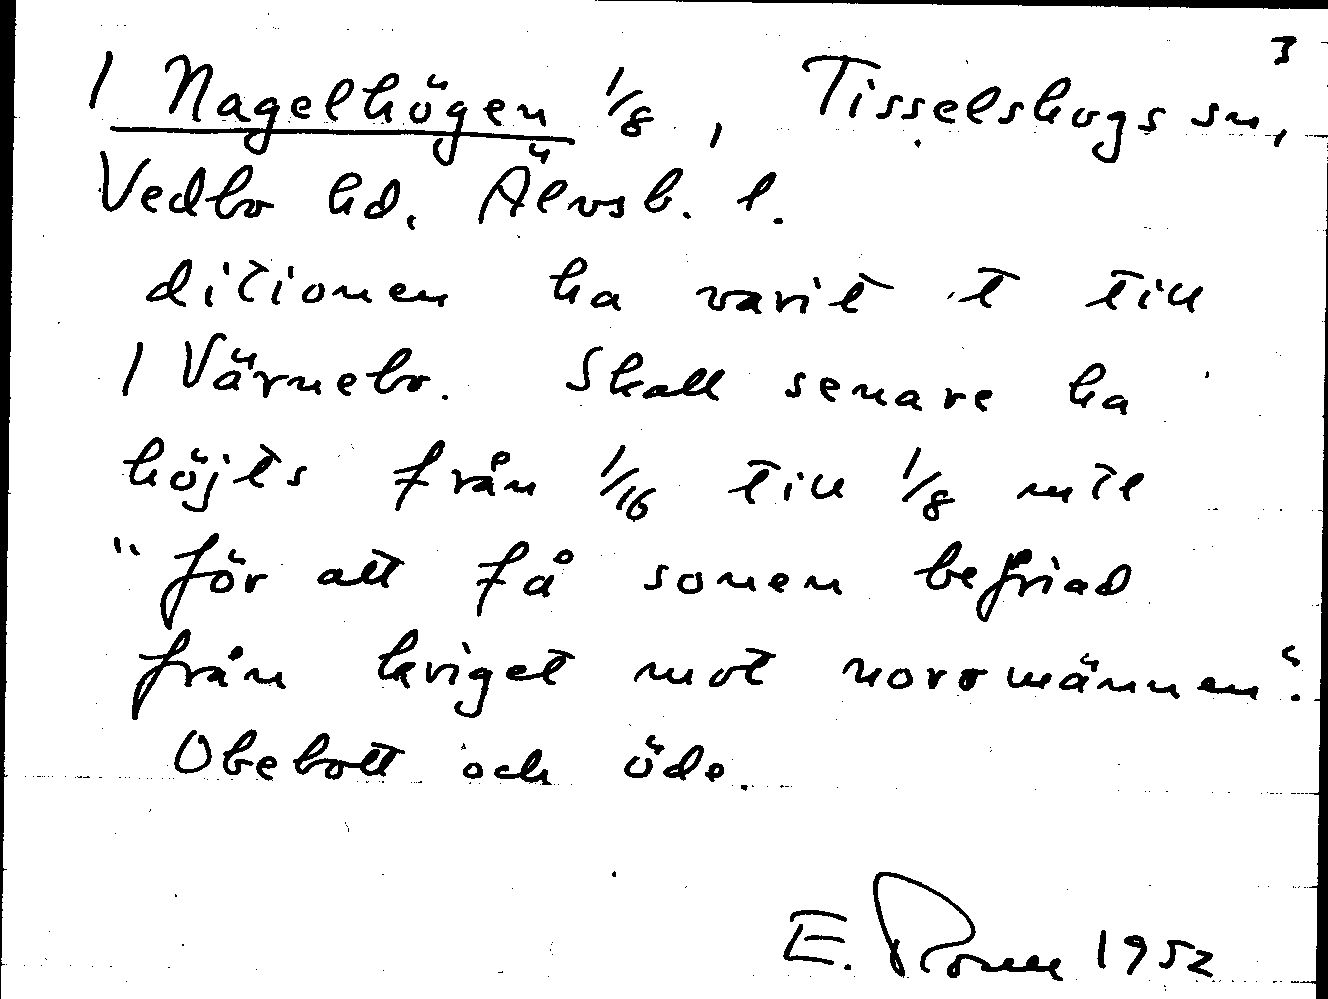 3
1 Nagelhögen 1/8, Tisselskogs sn,
Vedbo hd. Älvsb. l.
ditionen ha varit t till
1 Värnebo. Skall senare ha
höjts från 1/16 till 1/8 mtl
"för att få sonen befriad
från kriget mot norrmännen".
Obebott och öde.
E. 1952